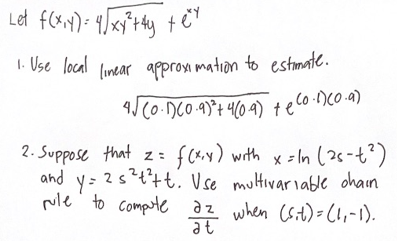 Let f(x,y) = 4√xy²+4y + e^xy
1. Use local linear approximation to estimate.
4√(0.1)(0.9)²+4(0.9) + e^(0.1)(0.9)
2. Suppose that z = f(x,y) with x = ln(2s-t²)
and y = 2s²t²+t. Use multivariable chain
rule to compute ∂z/∂t when (s,t) = (1,-1).